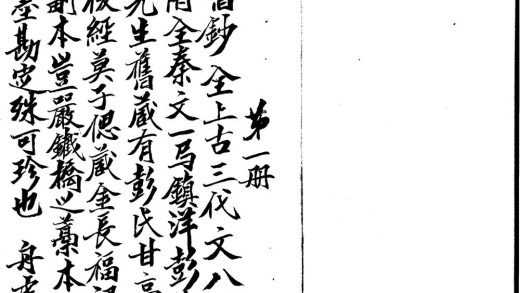 第一册
鈔全上古三代文八
全秦文一弓鎮洋彭
先生舊藏有彭氏甘
經莫子偲藏金長福
副本豈嚴鐵橋之藁本
勘定殊可珍也 舟